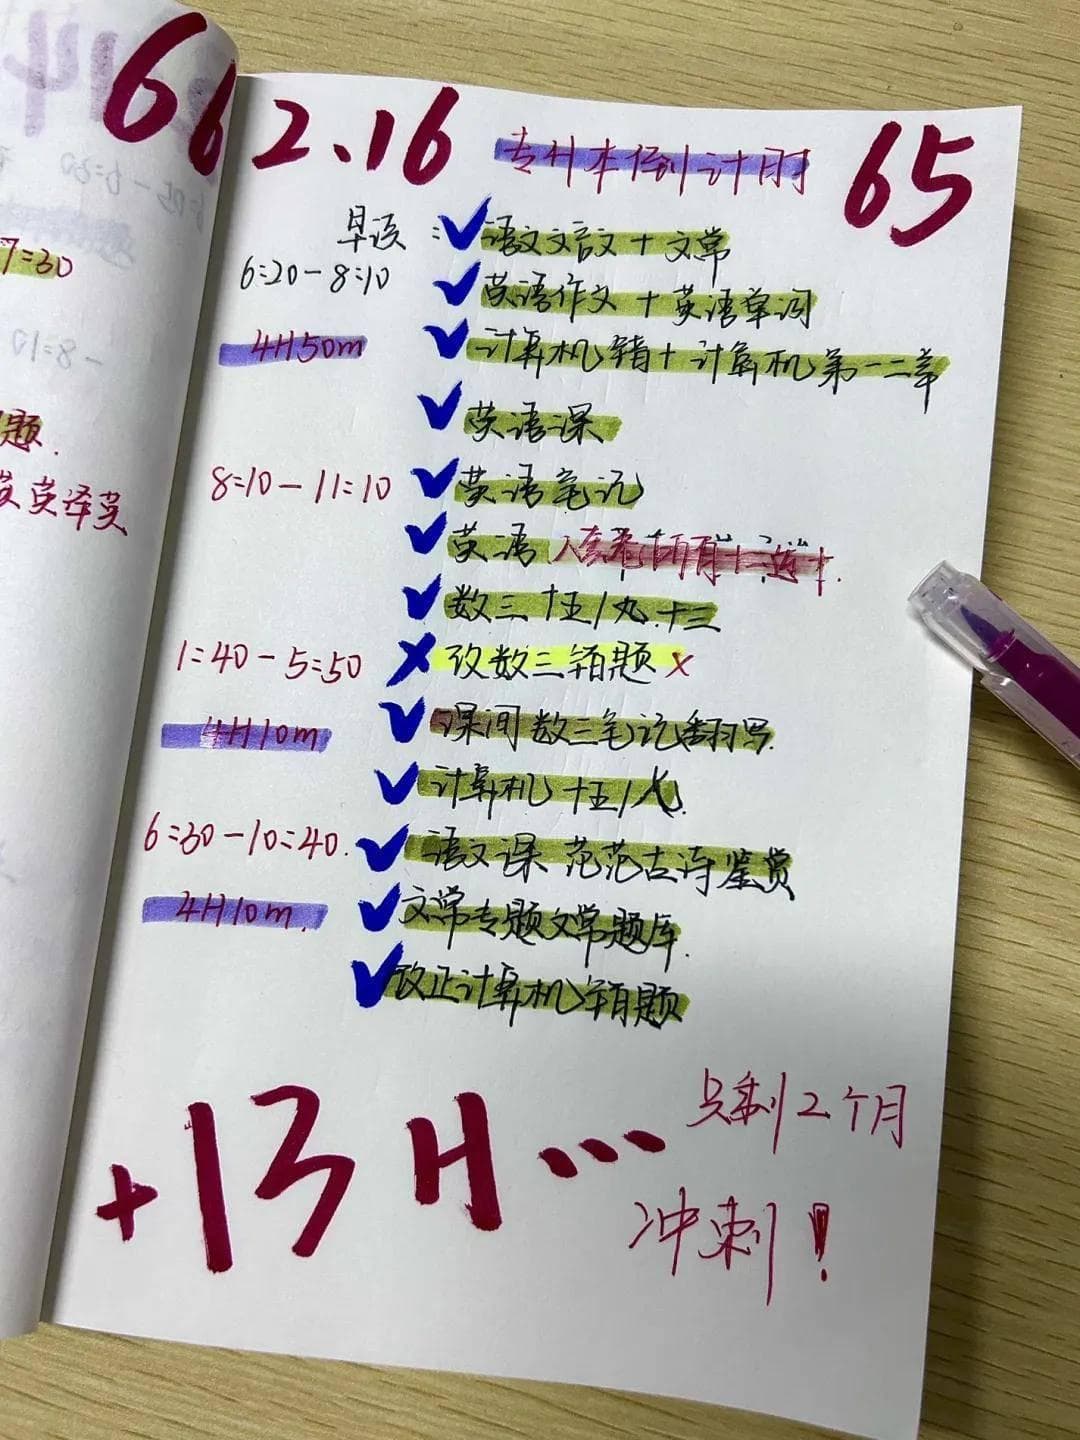 66
7:30
题.
英译英
2.16 专升本倒计时 65
早读: 语文文言文+文常
6:20-8:10 英语作文+英语单词
4H50m 计算机错+计算机第一二章
英语课
8:10-11:10 英语笔记
英语
数三 十五/九.十三
1:40-5:50 改数三错题 x
4H10m 课间数三笔记翻写.
计算机 十五/八.
6:30-10:40. 语文课 范范古诗鉴赏
4H10m. 文常专题文常题库.
改正计算机错题
+13H...
只剩2个月
冲刺!